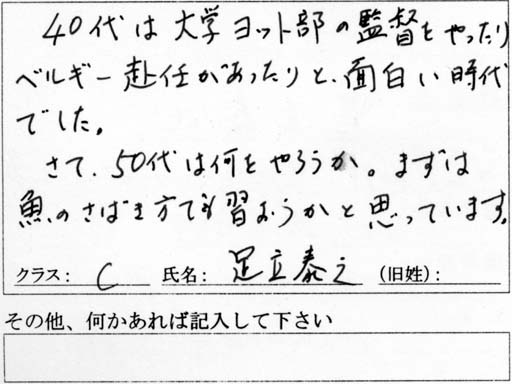 40代は大学ヨット部の監督をやったり
ベルギー赴任があったりと、面白い時代
でした。
さて、50代は何をやろうか。まずは
魚のさばき方でも習おうかと思っています。
クラス: C 氏名: 足立泰之 (旧姓):
その他、何かあれば記入して下さい